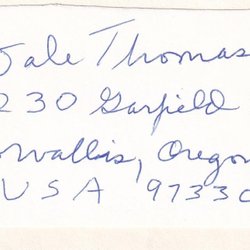 Dale Thomas
230 Garfield
orvallis, Oregon
USA 97330